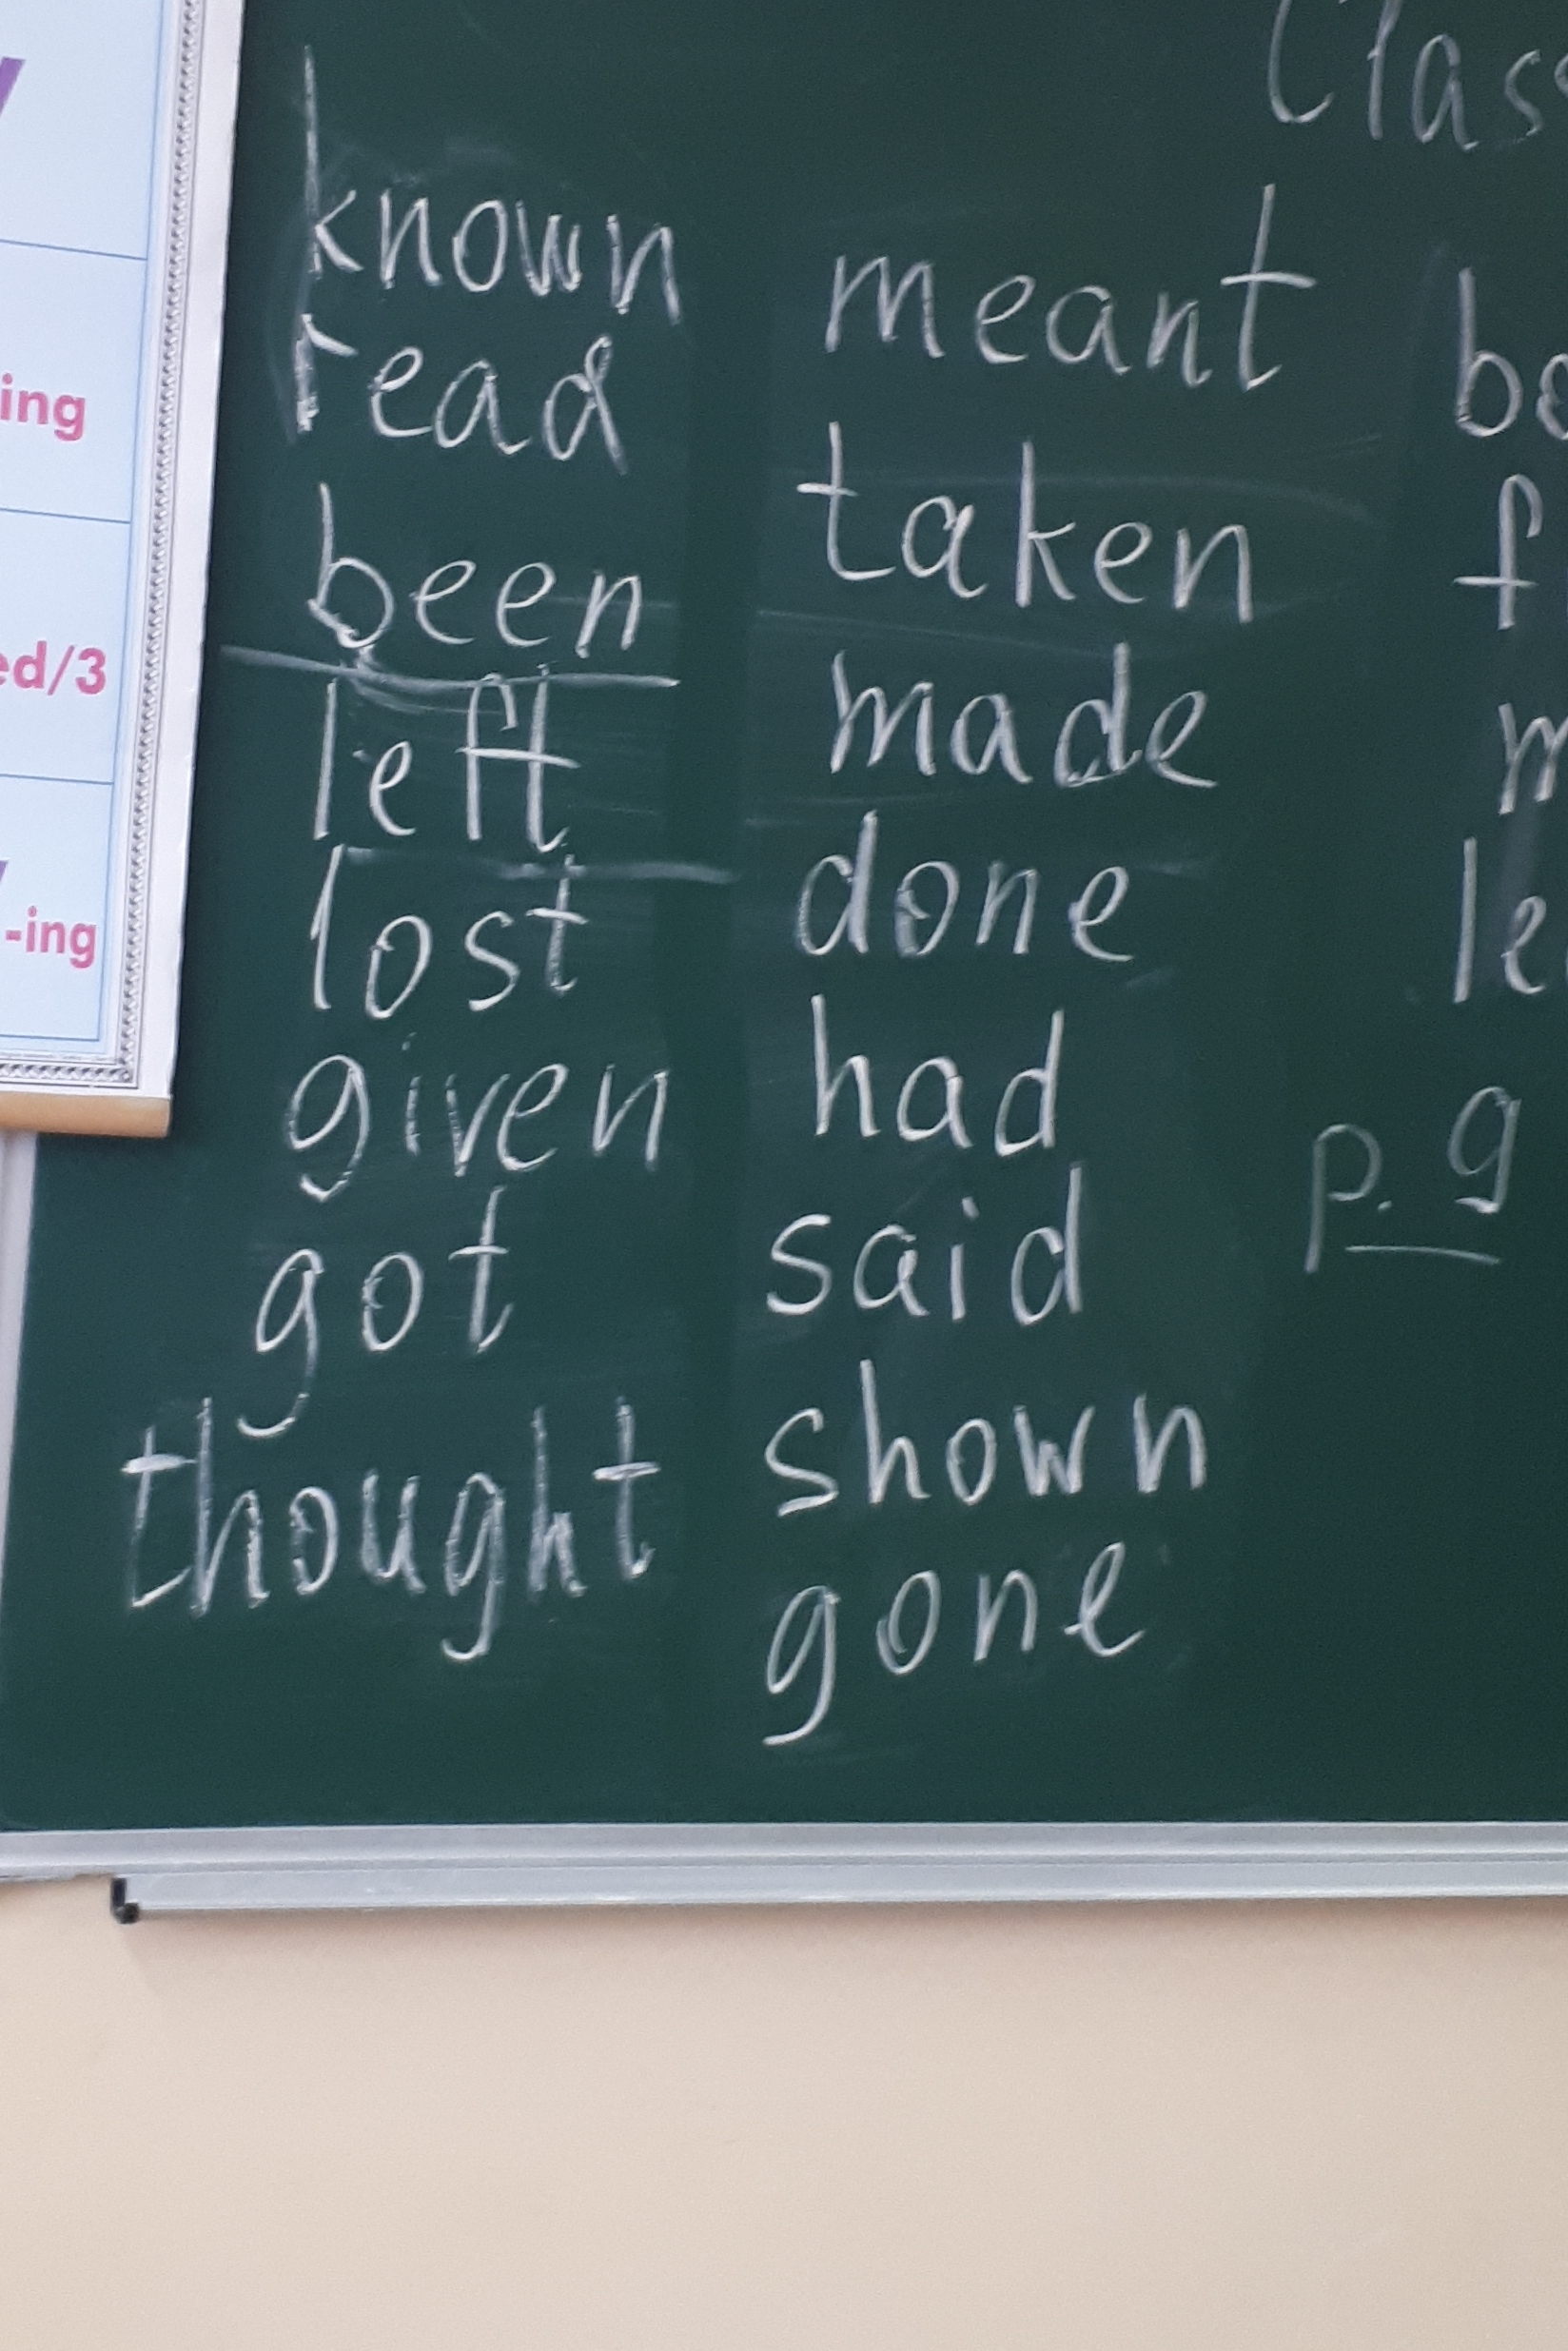 known
read
been
left
lost
given
got
thought
meant
taken
made
done
had
said
shown
gone
p. 9
ing
ed/3
-ing